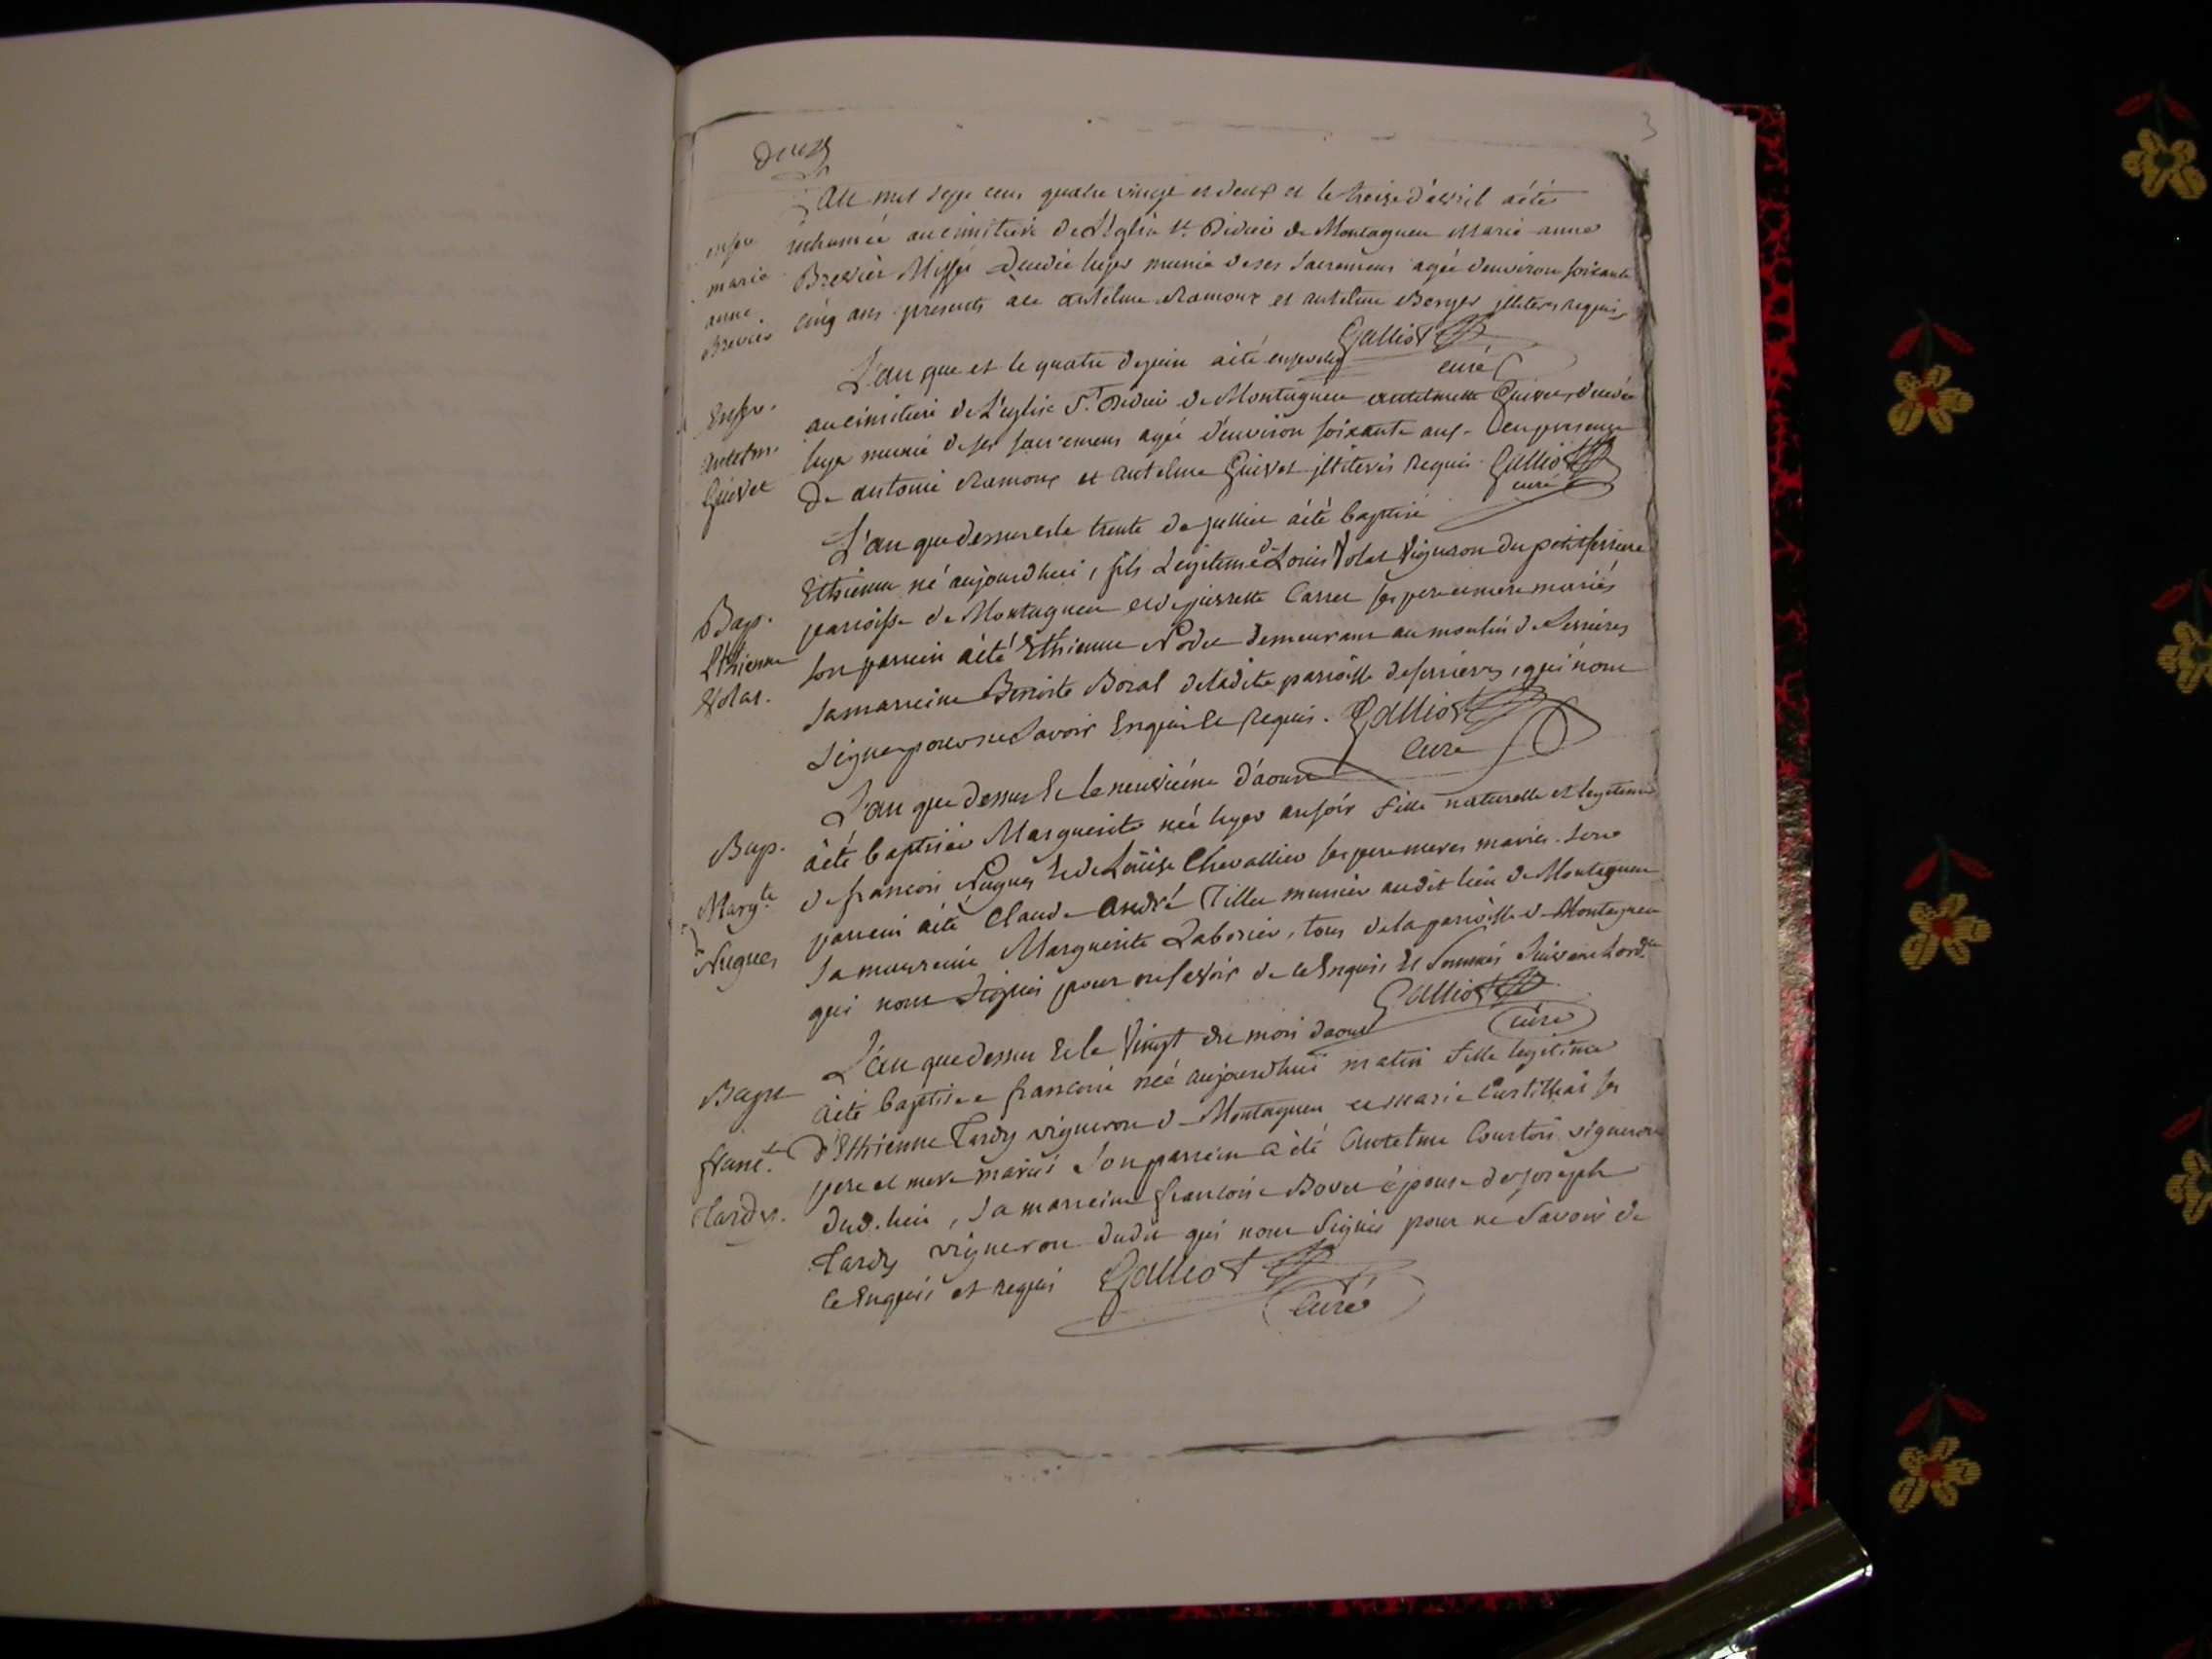 3
deux
L'an mil sept cent quatre vingt et deux et le treize d'avril a été
inhumée au cimitiere de L'Eglise St. Didier de Montagneu Marie anne
Brevier decedée hyer munie de ses sacremens agée d'environ soixante
cinq ans presents à ce antelme Ramoux et antelme Berger illiterés requis
Galliot
curé
enseve
marie
anne
Brevier
L'an que et le quatre de juin a été ensevely
au cimitiere de L'eglise St. Didier de Montagneu antelmette Guivet, decedée
hyer munie de ses sacremens agée d'environ soixante ans en presence
De antoine Ramoux et antelme Guivet illiterés requis Galliot
curé
Enseve.
antelm.
Guivet
L'an que dessus et le trente de jullet a été baptisé
Ethienne né aujourd'huei, fils Legitime de Louis Volat Vigneron du petit serriere
parroisse de Montagneu et de pierrette Carret ses pere et mere mariés
son parrein a été Ethienne Nodet demeurant au moulin de serrieres
sa marreine Benoite Boral de ladite parroisse de serrieres, qui n'ont
signe pour ne savoir Enquis Et Requis. Galliot
Curé
Bap.
Ethienne
Volat.
L'an que dessus Et le neuvieme d'aoust
a été baptisée Marguerite née hyer au soir fille naturelle et legitime
de francois Nugues Et de Loüise Chevallier ses pere meres mariés. son
parrein a été Claude André Tillet munier au dit lieu de Montagneu
sa marreine Marguerite Laborier, tous de la parroisse de Montagneu
qui n'ont signés pour ne savoir de ce Enquis Et sommés suivant Lord.ce
Galliot
Curé
Bap.
Marg.te
Nugues
L'an que dessus Et le Vingt du mois d'aoust
a été baptisée francoise née aujourd'hui matin fille legitime
d'Ethienne Tardy vigneron de Montagneu et marie Curtilliat ses
pere et mere mariés son parrein a été Antelme Courtois vigneron
dud. lieu, sa marreine francoise Bovet épouse de joseph
Tardy vigneron dudit qui n'ont signés pour ne savoir de
ce Enquis et requis Galliot
Curé
Bapt
Franc.se
Tardy.